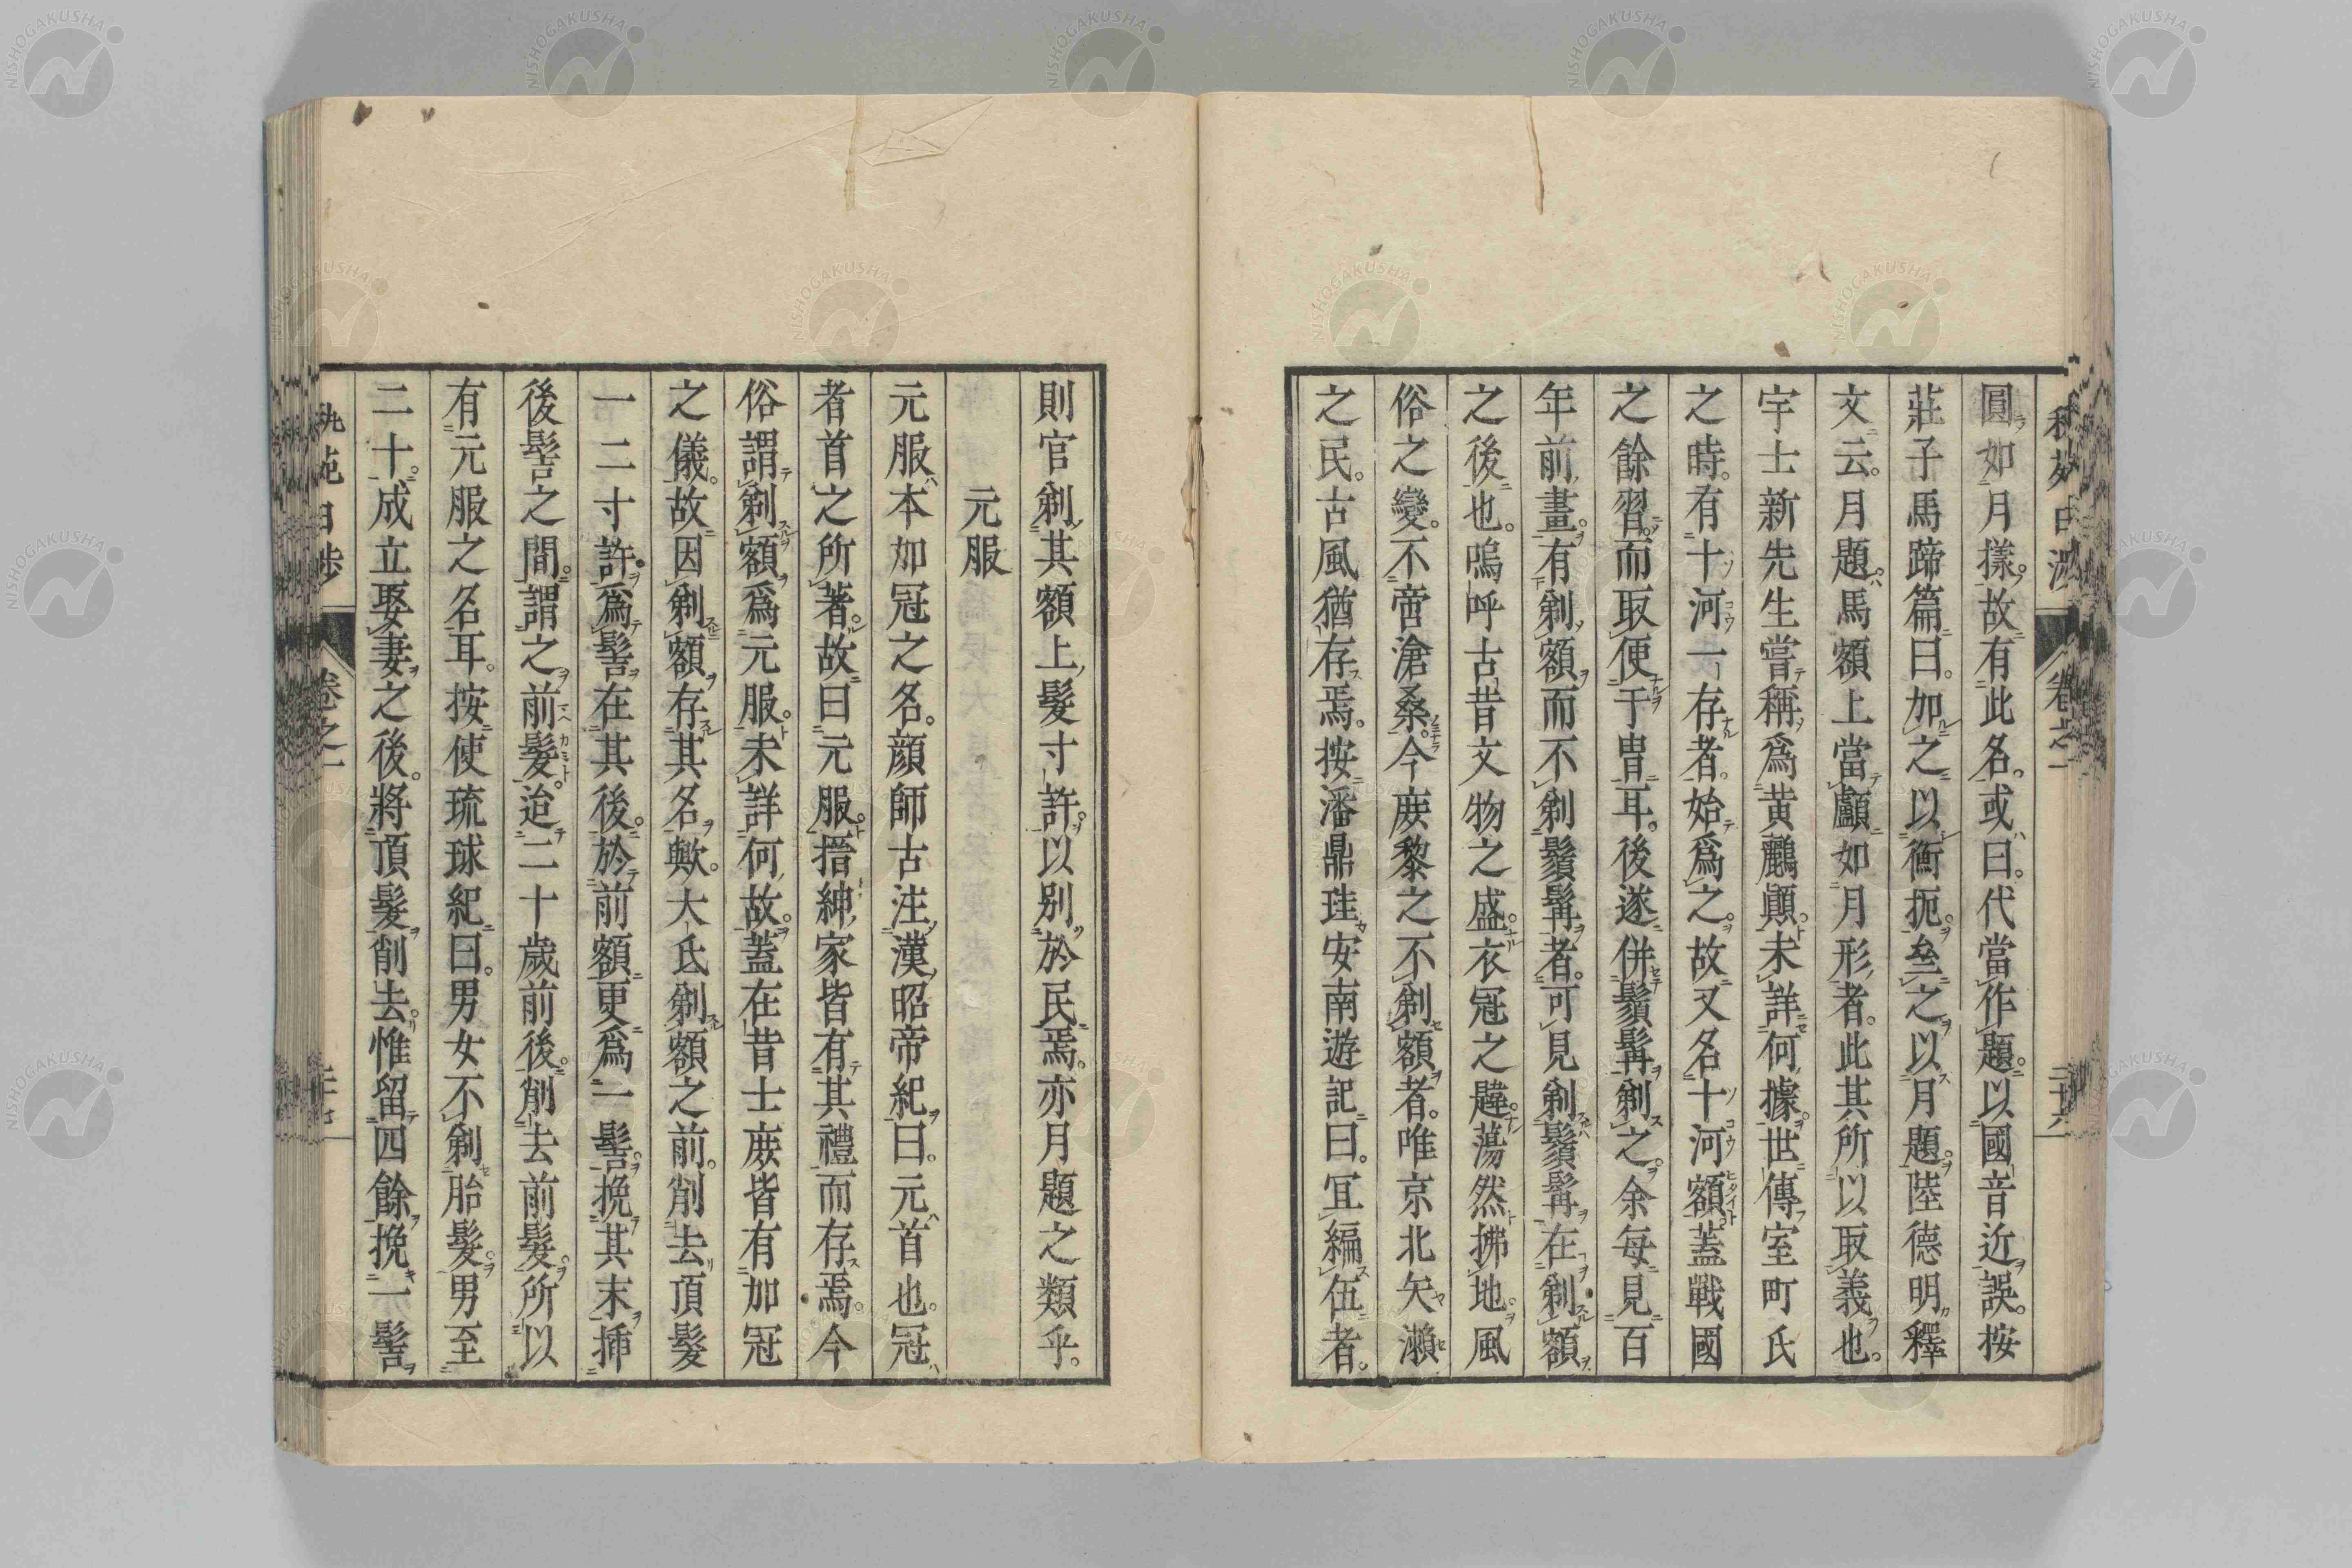 圓如月樣。故有此名。或曰。代當作題。以國音近誤。按
莊子馬蹄篇曰。加之以衡扼。叁之以月題。陸德明釋
文云。月題。馬額上當顱如月形者。此其所以取義也。
宇士新先生嘗稱爲黃鸝顚。未詳何據。世傳室町氏
之時。有十河一存者。始爲之。故又名十河額。蓋戰國
之餘習。而取便于冑耳。後遂併鬚髯剃之。余每見百
年前畫。有剃額而不剃鬚髯者。可見剃鬚髯在剃額
之後也。嗚呼古昔文物之盛。衣冠之韙。蕩然拂地。風
俗之變。不啻滄桑。今庶黎之不剃額者。唯京北矢瀨
之民。古風猶存焉。按潘鼎珪安南遊記曰。冝編伍者。
則官剃其額上髮寸許。以別於民焉。亦月題之類乎。
元服
元服本加冠之名。顔師古注漢昭帝紀曰。元首也。冠
者首之所著。故曰元服。搢紳家皆有其禮而存焉。今
俗謂剃額爲元服。未詳何故。蓋在昔士庶皆有加冠
之儀。故因剃額存其名歟。大氐剃額之前。削去頂髮
一二寸許。爲髻在其後。於前額更爲一髻。挽其末挿
後髻之間。謂之前髮。迨二十歲前後。削去前髮。所以
有元服之名耳。按使琉球紀曰。男女不剃胎髮。男至
二十。成立娶妻之後。將頂髮削去。惟留四餘挽一髻
卷之一
二十六
卷之一